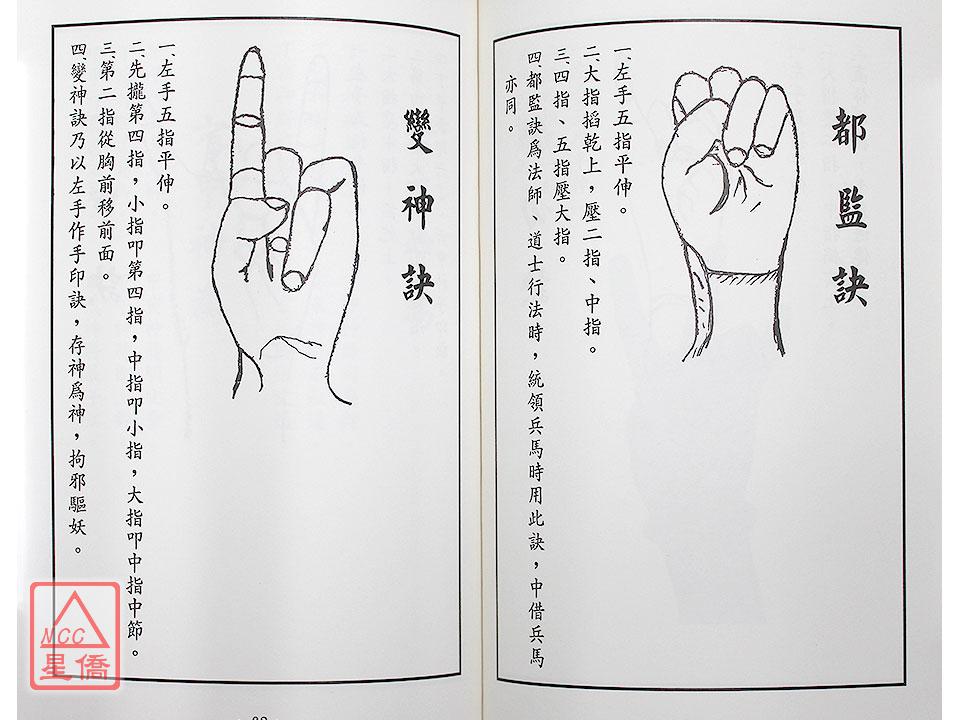 都監訣
一、左手五指平伸。
二、大指搯乾上，壓二指、中指。
三、四指、五指壓大指。
四、都監訣爲法師、道士行法時，統領兵馬時用此訣，中借兵馬
亦同。
變神訣
一、左手五指平伸。
二、先攏第四指，小指叩第四指，中指叩小指，大指叩中指中節。
三、第二指從胸前移前面。
四、變神訣乃以左手作手印訣，存神爲神，拘邪驅妖。
MCC
星僑